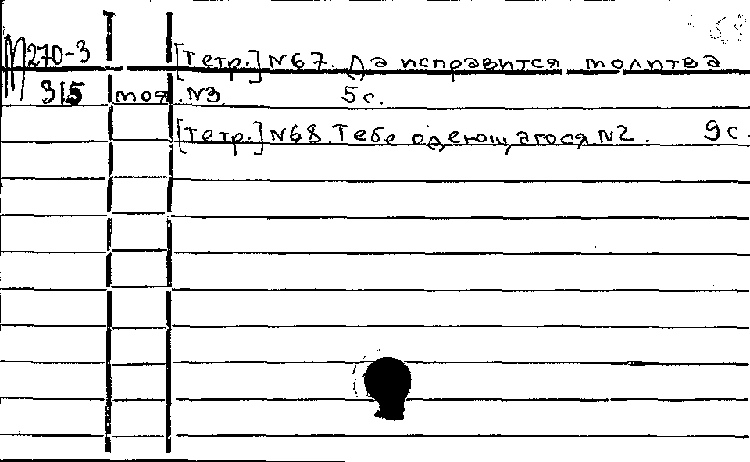 М270-3 [Тетр.] №67. Да исправится молитва
315 моя. №3 5 с.
[Тетр.] №68. Тебе одеющагося №2. 9 с.